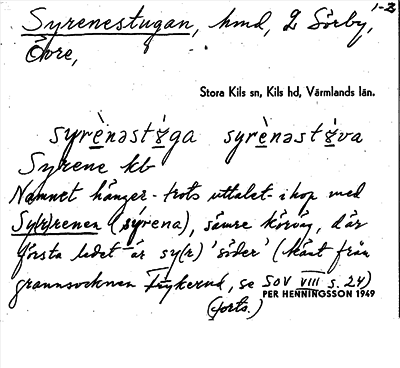 Syrenestugan, hmd, L Sörby, 1-2
Övre,
Stora Kils sn, Kils hd, Värmlands län.
syrènəstɤ̀ga syrènəstɤ̀va
Syrene kb
Namnet hänger - trots uttalet - ihop med
Sy(r)renen (sýrena), sämre körväg, där
första ledet är sy(r) 'söder' (känt från
grannsocknen Frykerud, se SOV VIII s. 24)
PER HENNINGSSON 1949
(forts.)